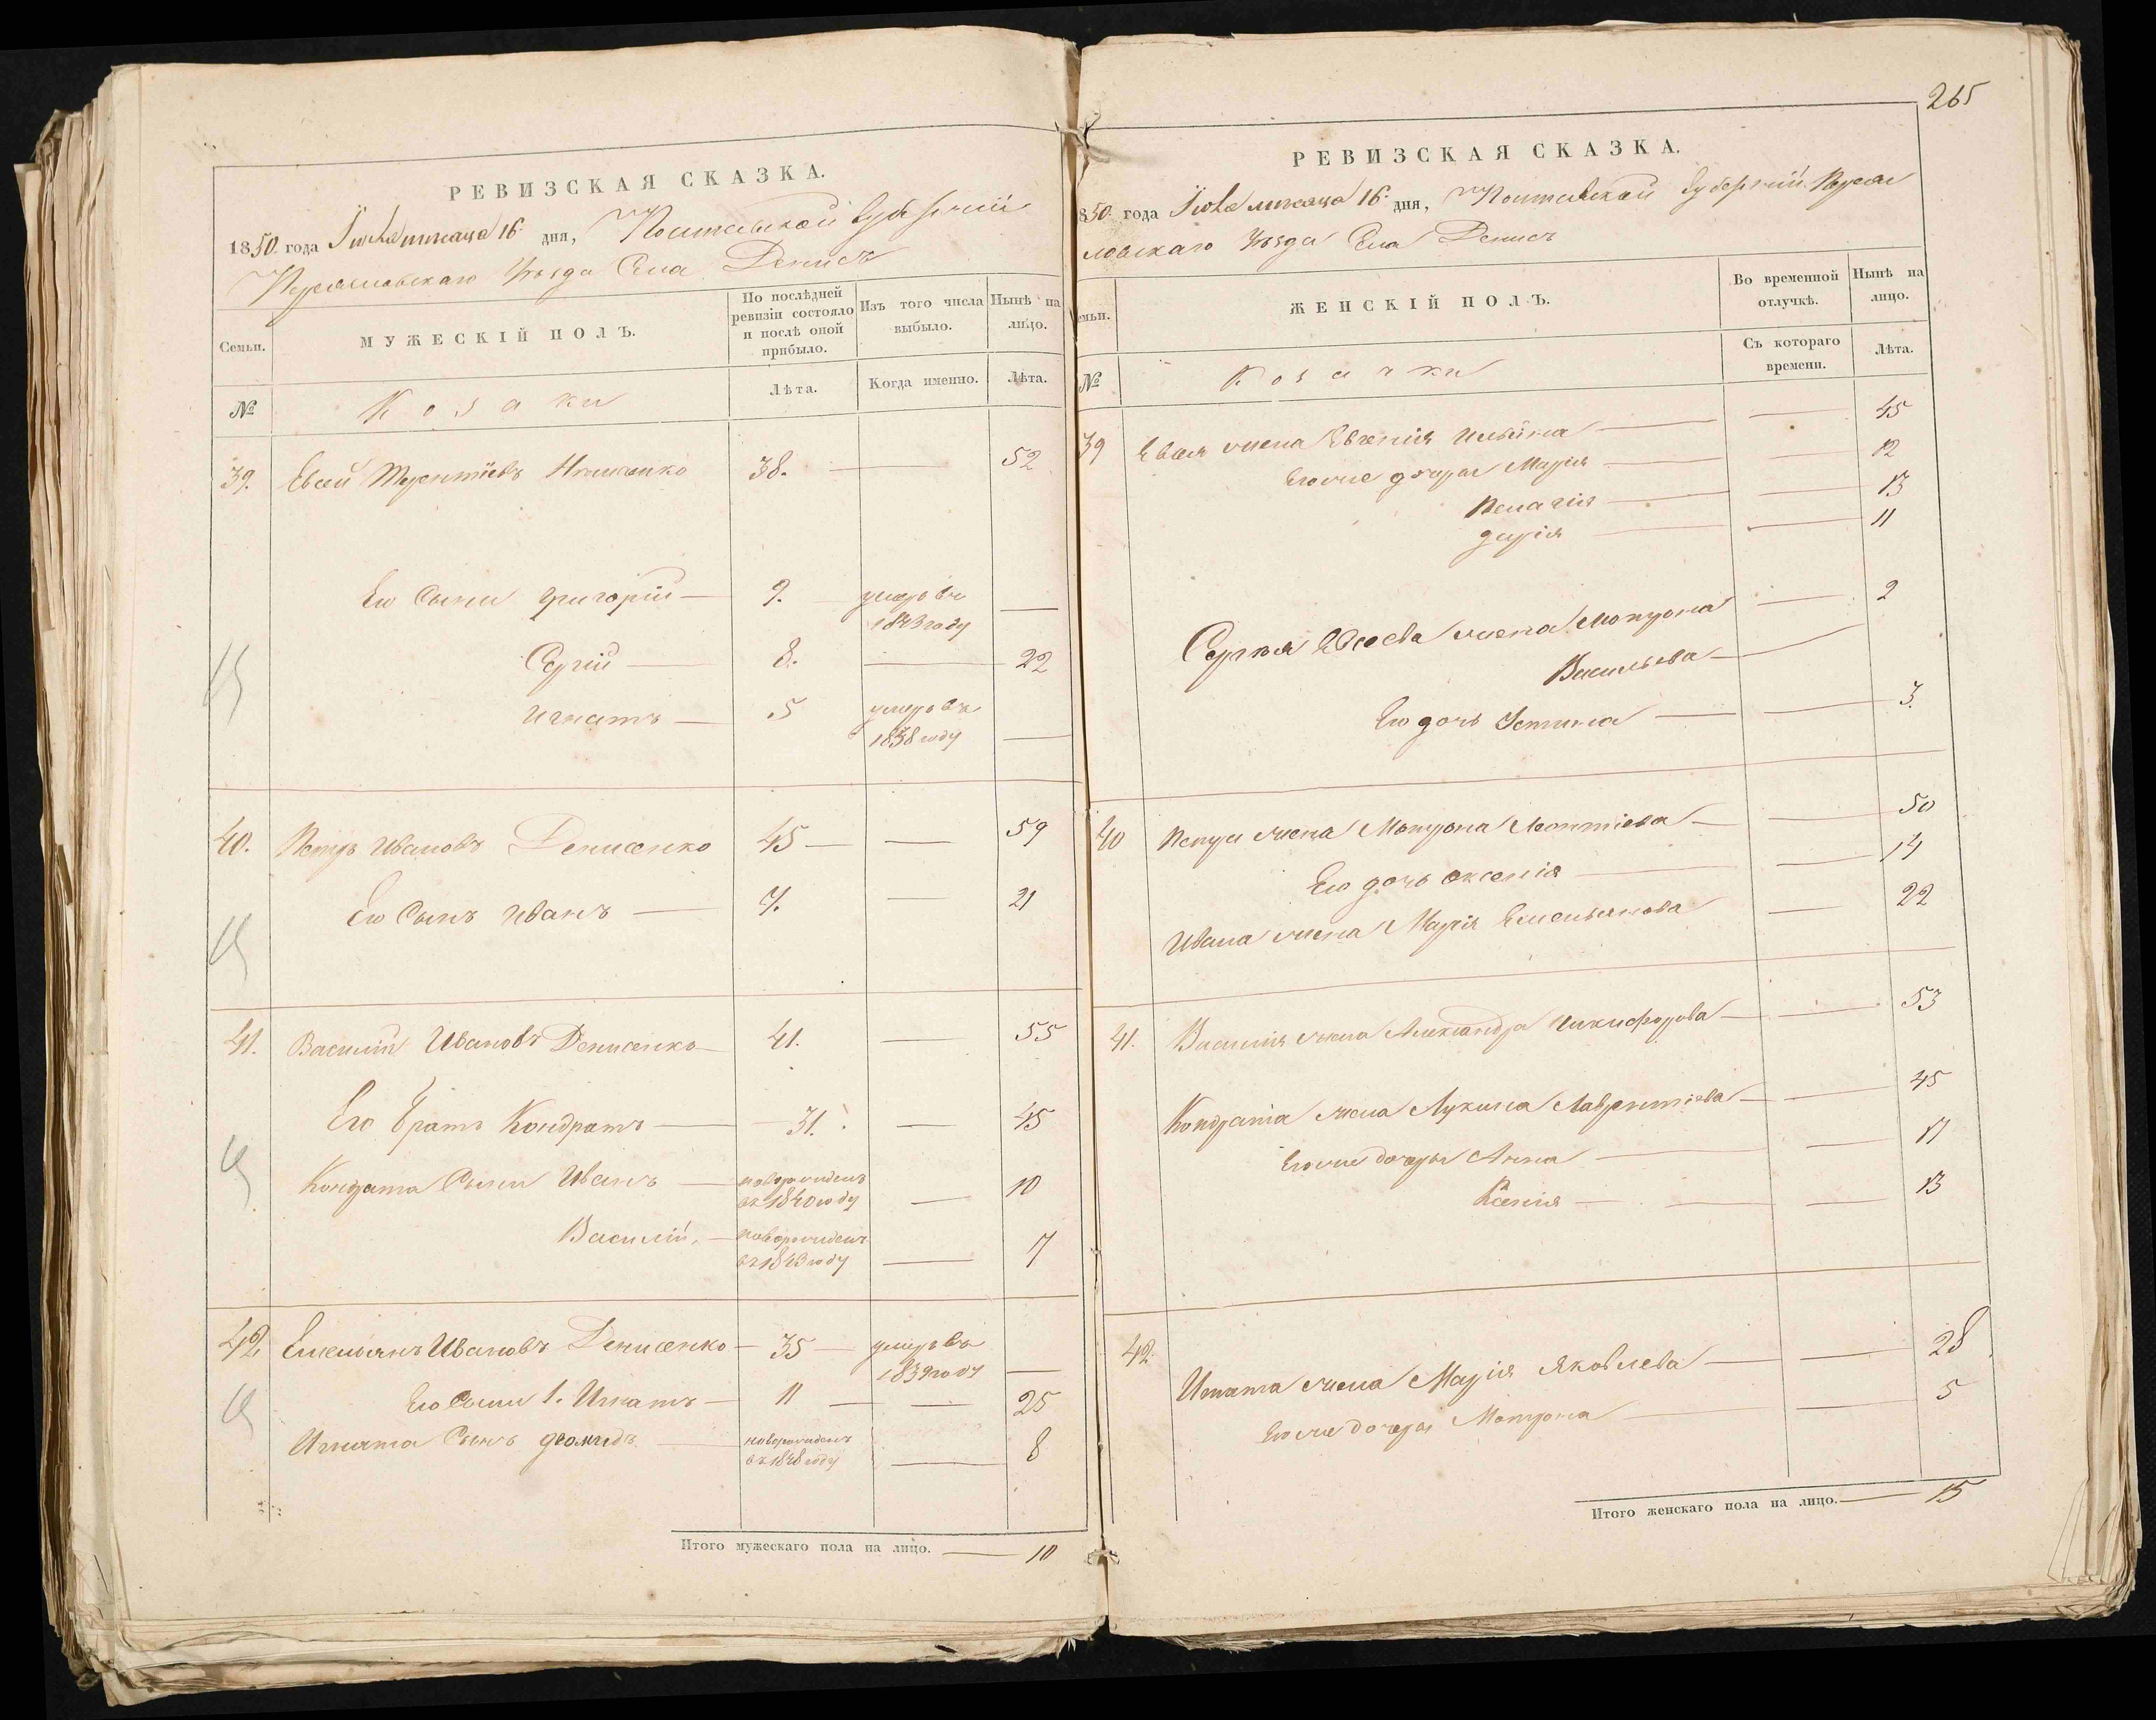 265
РЕВИЗСКАЯ СКАЗКА.
1850 года Іюля мѣсяца 16 дня, Полтавской Губерніи
Переяславскаго Уѣзда Села Денисъ
Семьи. МУЖЕСКІЙ ПОЛЪ. По послѣдней ревизіи состояло и послѣ оной прибыло. Изъ того числа выбыло. Нынѣ на лицо.
№ Козаки Лѣта. Когда именно. Лѣта.
39. Евсей Терентіевъ 38. 52
Его Сыны Григорій 9. умеръ въ
1843 году
Сергій 8. 22
Игнатъ 5 умеръ въ
1838 году
40. Петръ Ивановъ Денисенко 45 59
Его Сынъ Иванъ 7. 21
41. Василій Ивановъ Денисенко 41. 55
Его Братъ Кондратъ 31. 45
Кондрата Сыны Иванъ новорожденъ
въ 1840 году 10
Василій новорожденъ
въ 1843 году 7
42 Емельянъ Ивановъ Денисенко 35 умеръ въ
1839 году
Его Сыны 1. Игнатъ 11 25
Игната Сынъ новорожденъ
въ 1848 году 8
Итого мужескаго пола на лицо. 10
РЕВИЗСКАЯ СКАЗКА.
850 года Іюля мѣсяца 16 дня, Полтавской Губерніи Переяс
лавскаго Уѣзда Села Денисъ
емьи. ЖЕНСКІЙ ПОЛЪ. Во временной отлучкѣ. Нынѣ на лицо.
№ Козачки Съ котораго времени. Лѣта.
39 Евсея жена Евгенія Ильина 45
Его же дочери Марія 12
Пелагія 13
Дарія 11
Сергія жена Мотрона 2
Васильева
Его дочь Устина 3.
40 Петра жена Мотрона Леонтіева 50
Его дочь Оксенія 14
Ивана жена Марія Емельянова 22
41. Василія жена Александра Никифорова 53
Кондрата жена Лукина Лаврентіева 45
Его же дочери Анна 17
Ксенія 13
42. Игната жена Марія Яковлева 28
Его же дочери Мотрона 5
Итого женскаго пола на лицо. 15